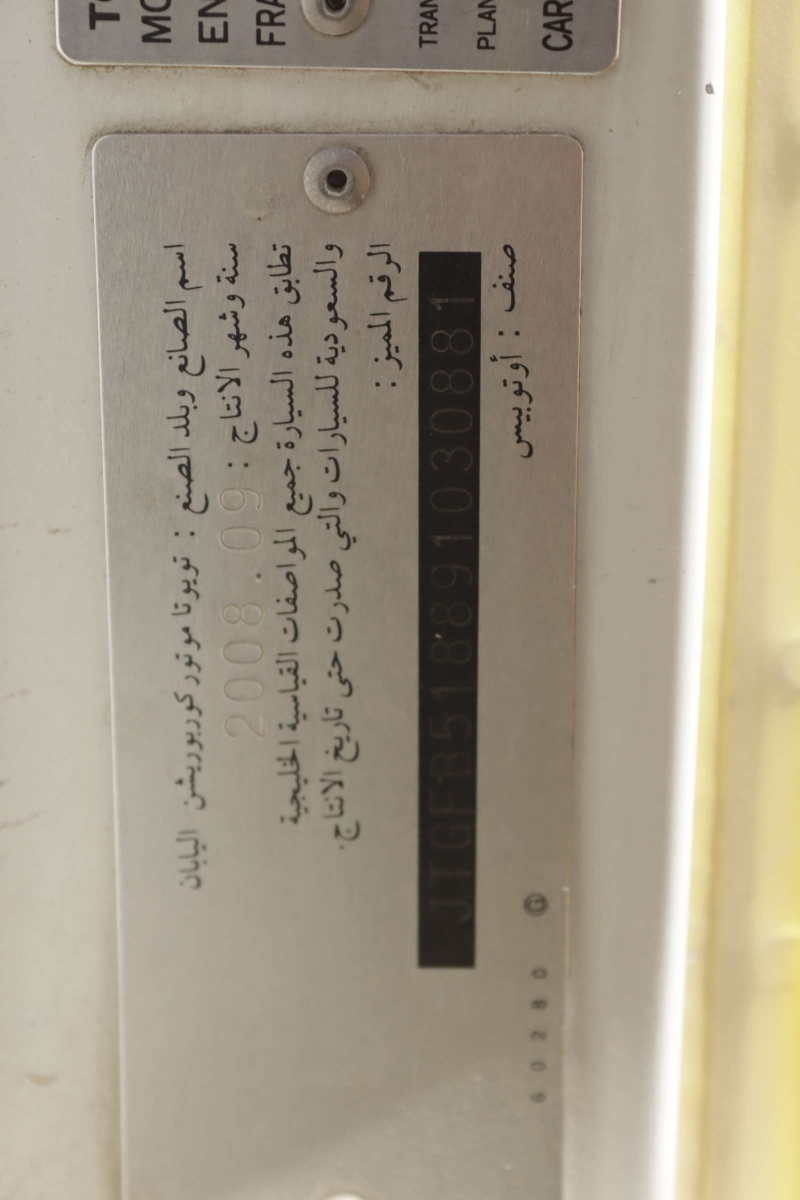 TO
MO
EN
FRA
TRAN
PLAN
CAR
اسم الصانع وبلد الصنع : تويوتا موتور كوربوريشن اليابان
سنة وشهر الانتاج : 2008.09
تطابق هذه السيارة جميع المواصفات القياسية الخليجية
والسعودية للسيارات والتي صدرت حتى تاريخ الانتاج.
الرقم المميز :
JTGFB518891030881
صنف : أوتوبيس
60280 G